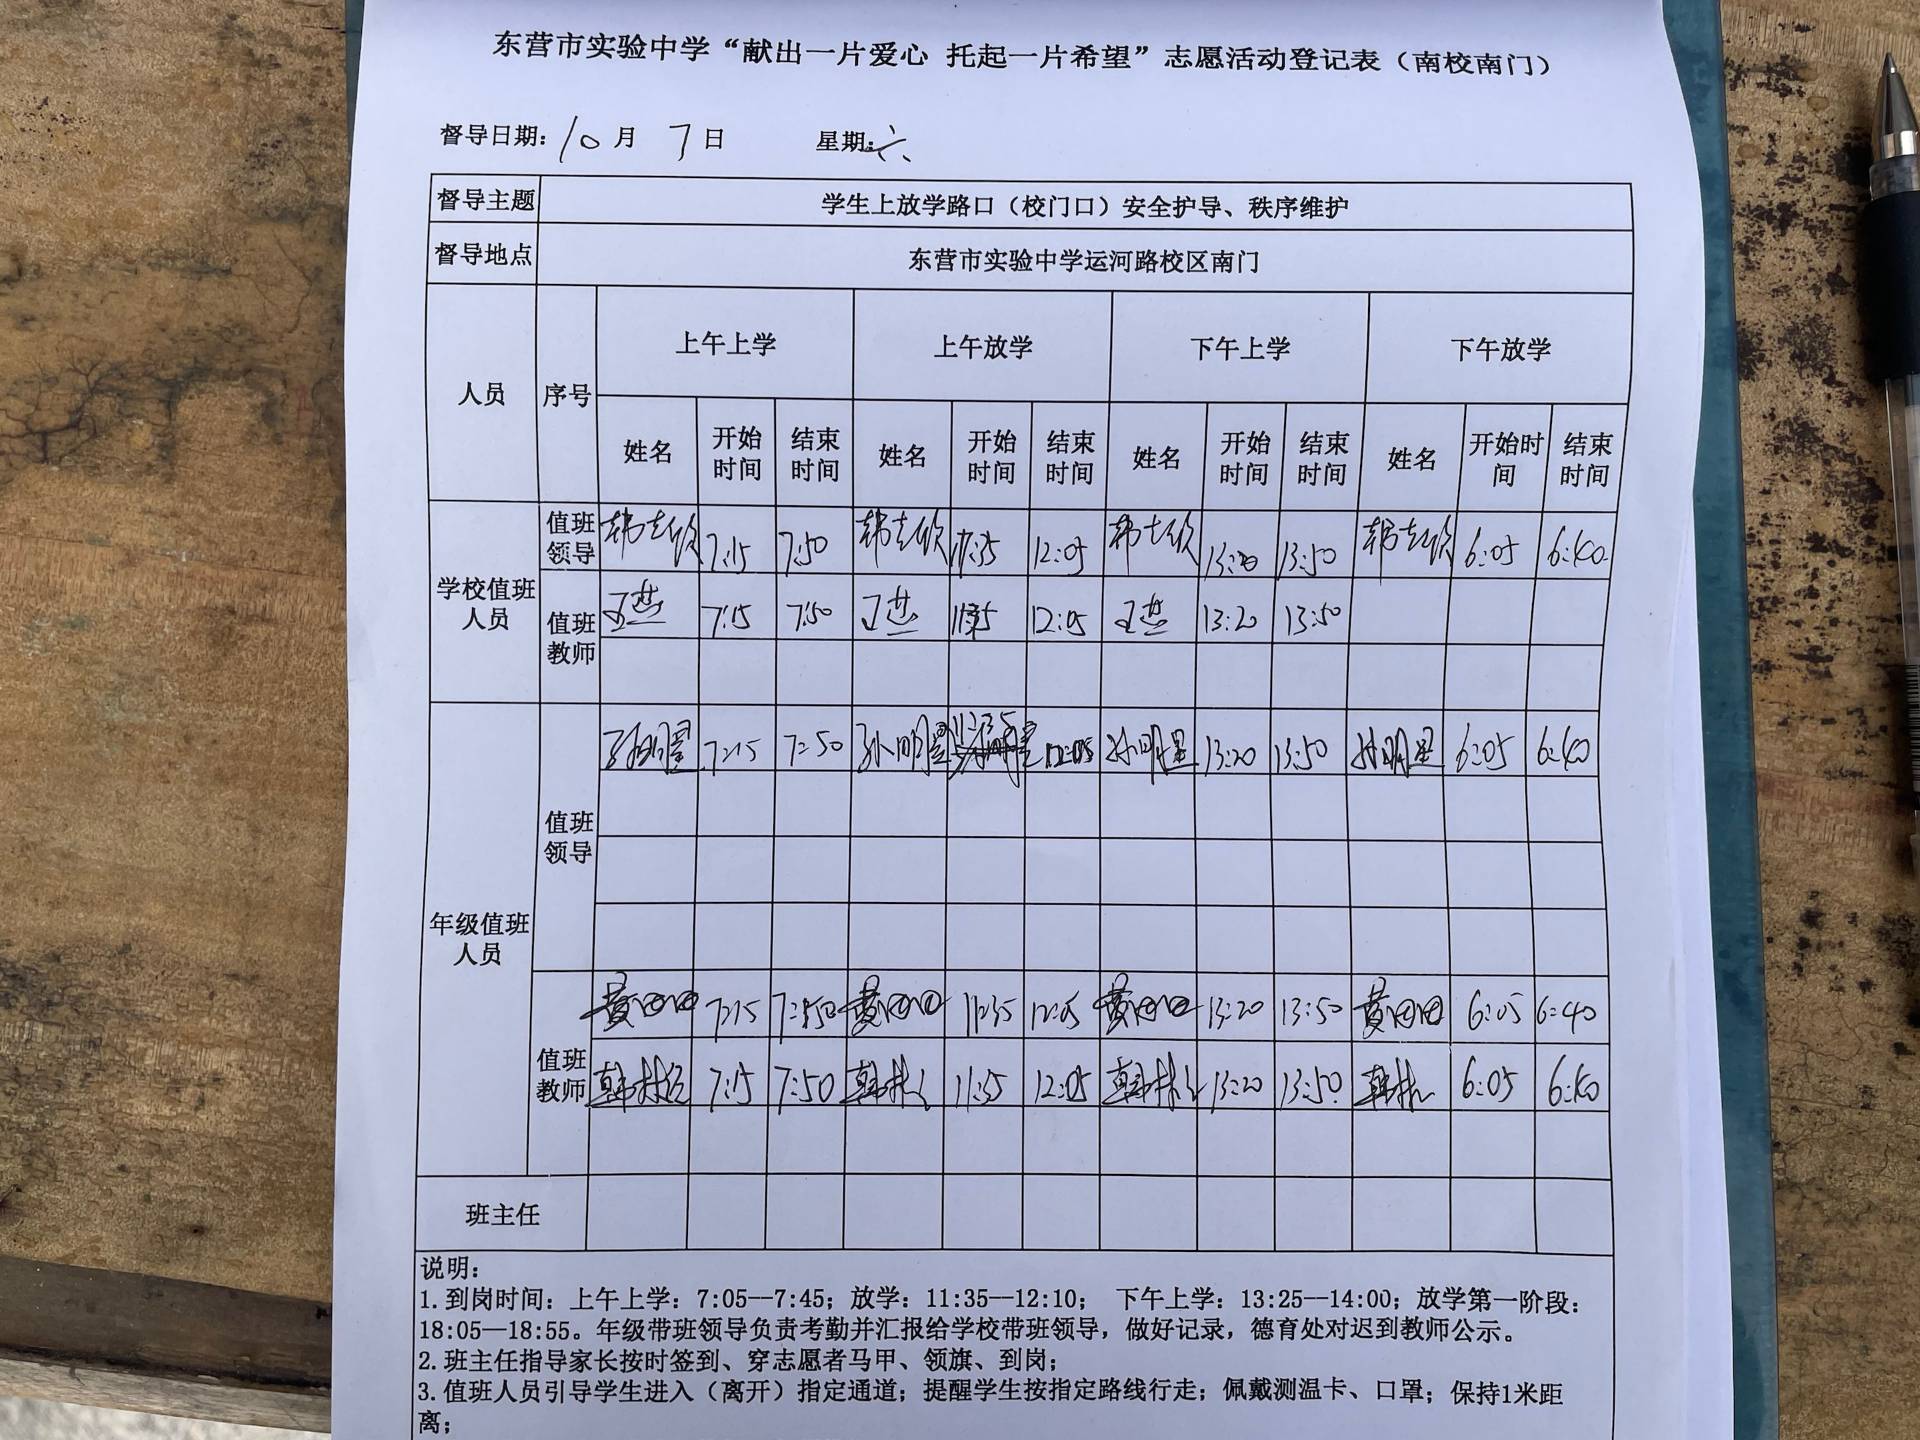 东营市实验中学“献出一片爱心 托起一片希望”志愿活动登记表（南校南门）
督导日期：10月 7日 星期：六
督导主题 学生上放学路口（校门口）安全护导、秩序维护
督导地点 东营市实验中学运河路校区南门
人员 序号 上午上学 上午放学 下午上学 下午放学
姓名 开始时间 结束时间 姓名 开始时间 结束时间 姓名 开始时间 结束时间 姓名 开始时间 结束时间
学校值班人员 值班领导 7:15 7:50 12:05 13:20 13:50 6:05 6:40
值班教师 王燕 7:15 7:50 王燕 12:05 王燕 13:20 13:50
年级值班人员 值班领导 孙明星 7:15 7:50 孙明星 11:35 12:05 孙明星 13:20 13:50 孙明星 6:05 6:40
值班教师 黄田田 7:15 7:50 黄田田 11:35 12:05 黄田田 13:20 13:50 黄田田 6:05 6:40
7:15 7:50 11:35 12:05 13:20 13:50 6:05 6:40
班主任
说明：
1.到岗时间：上午上学：7:05--7:45；放学：11:35--12:10； 下午上学：13:25--14:00；放学第一阶段：
18:05—18:55。年级带班领导负责考勤并汇报给学校带班领导，做好记录，德育处对迟到教师公示。
2.班主任指导家长按时签到、穿志愿者马甲、领旗、到岗；
3.值班人员引导学生进入（离开）指定通道；提醒学生按指定路线行走；佩戴测温卡、口罩；保持1米距
离；